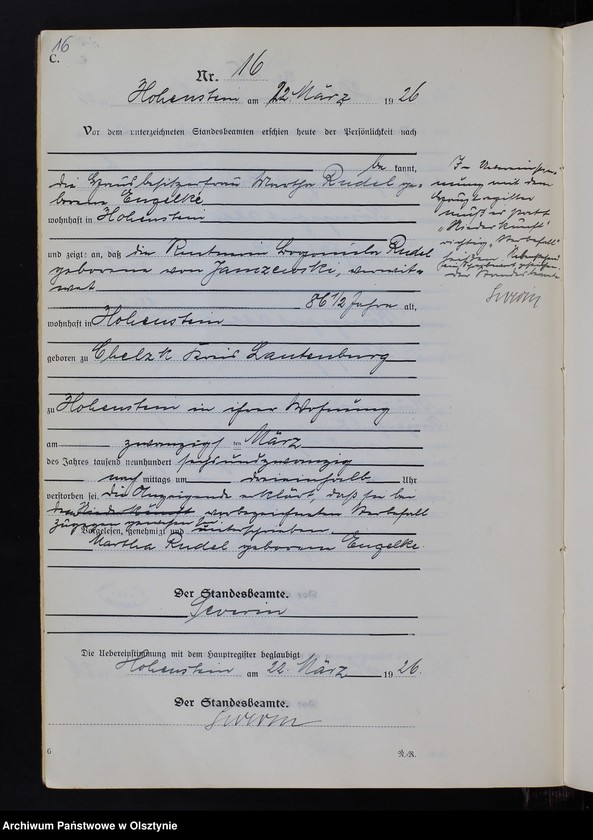 16
C.
Nr. 16
Hohenstein am 22. März 1926
Vor dem unterzeichneten Standesbeamten erschien heute der Persönlichkeit nach
be kannt,
die Hausbesitzerfrau Martha Rudel ge-
borene Engelke
wohnhaft in Hohenstein
und zeigte an, daß die Rentnerin Rudel
geborene von Janczewski, verwit-
wet
86 1/2 Jahre alt,
wohnhaft in Hohenstein
geboren zu Kreis Lautenburg
zu Hohenstein in ihrer Wohnung
am zwanzigsten März
des Jahres tausend neunhundert sechsundzwanzig
nach mittags um dreieinhalb Uhr
verstorben sei. Die Anzeigende erklärt, daß sie bei
der Niederkunft vorbezeichneten Sterbefall
zugegen gewesen sei.
Vorgelesen, genehmigt und unterschrieben
Martha Rudel geborene Engelke.
Der Standesbeamte.
Severin
Die Uebereinstimmung mit dem Hauptregister beglaubigt
Hohenstein am 22. März 1926.
Der Standesbeamte.
Severin
6
In Übereinstim-
mung mit dem
Hauptregister
muß es statt
"Niederkunft"
richtig "Sterbefall"
heißen.
der Standesbeamte
Severin
Archiwum Państwowe w Olsztynie